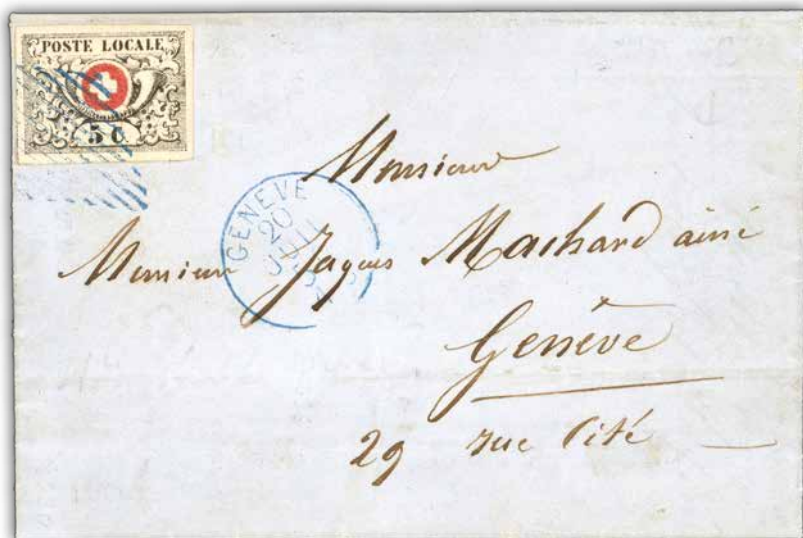 POSTE LOCALE
5 C.
GENÈVE
20
JUIL
Monsieur
Monsieur Jaques Machard ainé
Genève
29 rue Cité